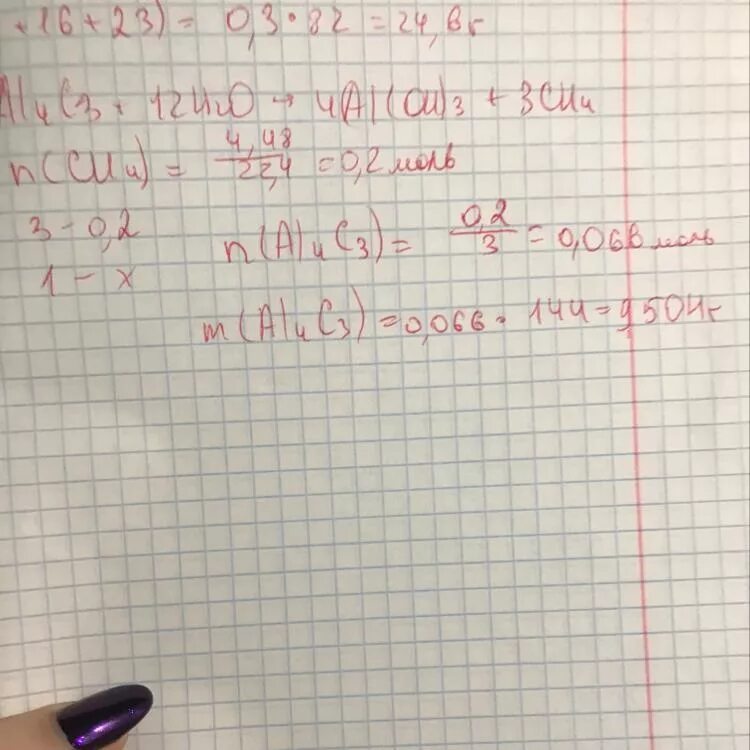 +16+23) = 0,3·82 = 24,6г
Al₄C₃ + 12H₂O → 4Al(OH)₃ + 3CH₄
n(CH₄) = 4,48/22,4 = 0,2 моль
3 - 0,2
1 - x
n(Al₄C₃) = 0,2/3 = 0,066 моль
m(Al₄C₃) = 0,066 · 144 = 9,504г